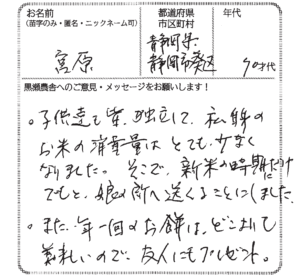 お名前
(苗字のみ・匿名・ニックネーム可)
都道府県
市区町村
年代
宮原
静岡県
静岡市葵区
70才代
黒瀬農舎へのご意見・メッセージをお願いします!
。子供達も皆、独立して、私自身の
お米の消費量はとても少なく
なりました。そこで、新米の時期だけ
でもと、娘の所へ送ることにしました。
。また、年一回のお餅は、どこよりも
美味しいので、友人にもプレゼント。